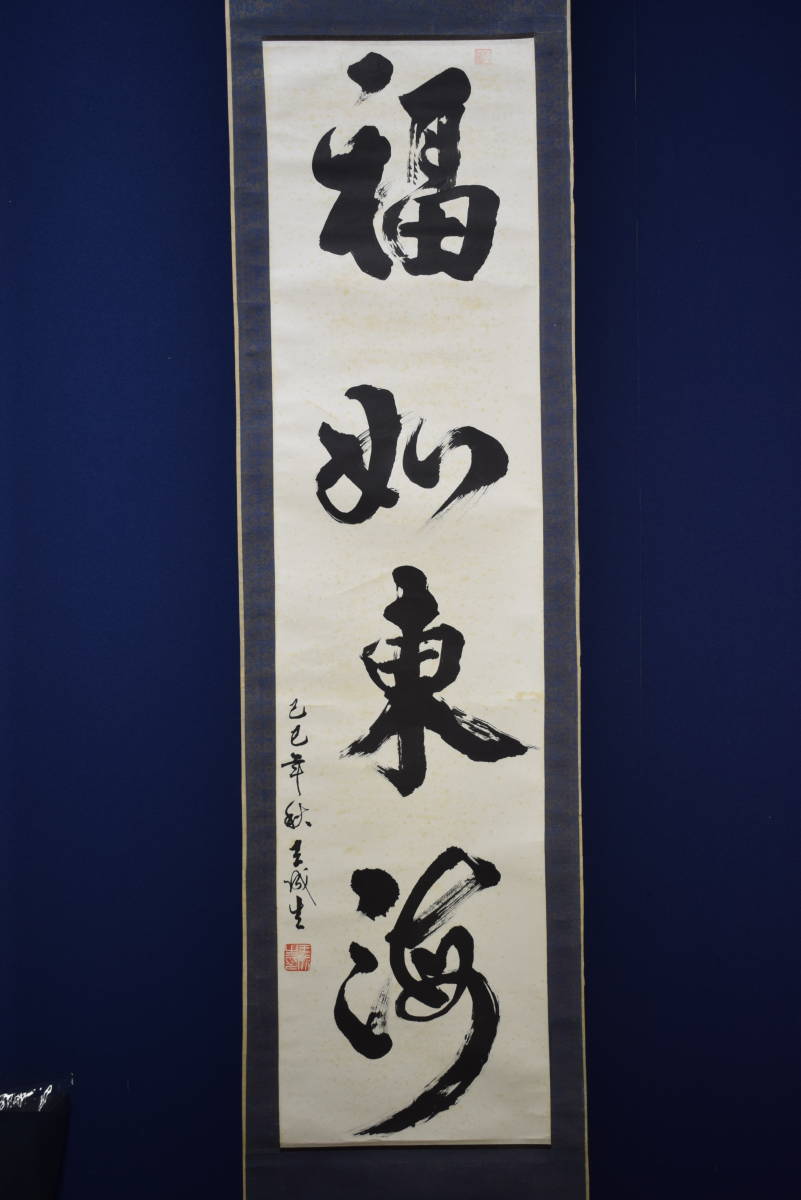 福如東海
己巳年秋